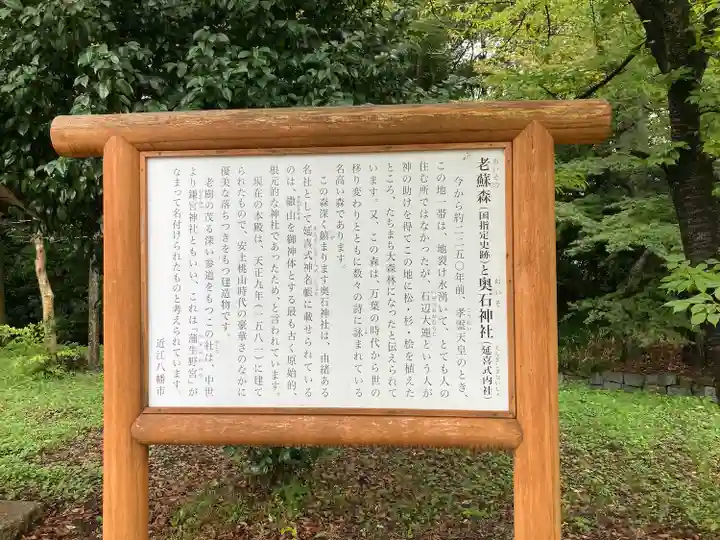 老蘇森(国指定史跡)と奥石神社(延喜式内社)
今から約二二五〇年前、孝霊天皇のとき、
この地一帯は、地裂け水湧いて、とても人の
住む所ではなかったが、石辺大連という人が
神の助けを得てこの地に松・杉・桧を植えた
ところ、たちまち大森林になったと伝えられて
います。又、この森は、万葉の時代から世の
移り変わりとともに数々の詩に詠まれている
名高い森であります。
この森深く鎮まります奥石神社は、由緒ある
名社として延喜式神名帳に載せられている
のは、繖山を御神体とする最も古く原始的、
根元的な神社であったため、と言われています。
現在の本殿は、天正九年(一五八一)に建て
られたもので、安土桃山時代の豪華さのなかに
優美な落ちつきをもつ建造物です。
老樹の茂る深い参道をもつこの社は、中世
より鎌宮神社ともいい、これは、「蒲生野宮」が
なまって名付けられたものと考えられています。
近江八幡市